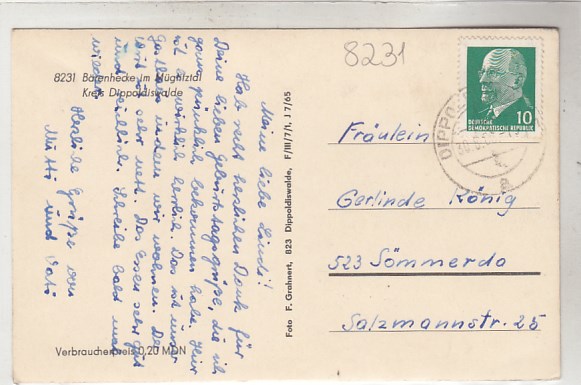 8231
8231 Bärenhecke im Müglitztal
Kreis Dippoldiswalde
Meine liebe Lindi!
Hab recht herzlichen Dank für
Deine lieben Geburtstagsgrüße, die ich
ganz pünktlich bekommen habe. Hier
ist es wirklich herrlich. Das ist unser
Gasthaus indem wir wohnen. Der
Wirt ist sehr nett. Das Essen sehr gut
und reichlich. Schreibe bald mal
wieder.
Herzliche Grüße von
Mutti und Vati
Foto F. Grahnert, 823 Dippoldiswalde, F/III/7/1, J 7/65
Verbraucherpreis 0,20 MDN
10
DEUTSCHE
DEMOKRATISCHE REPUBLIK
DIPPO
a
Fräulein
Gerlinde König
523 Sömmerda
Salzmannstr. 25